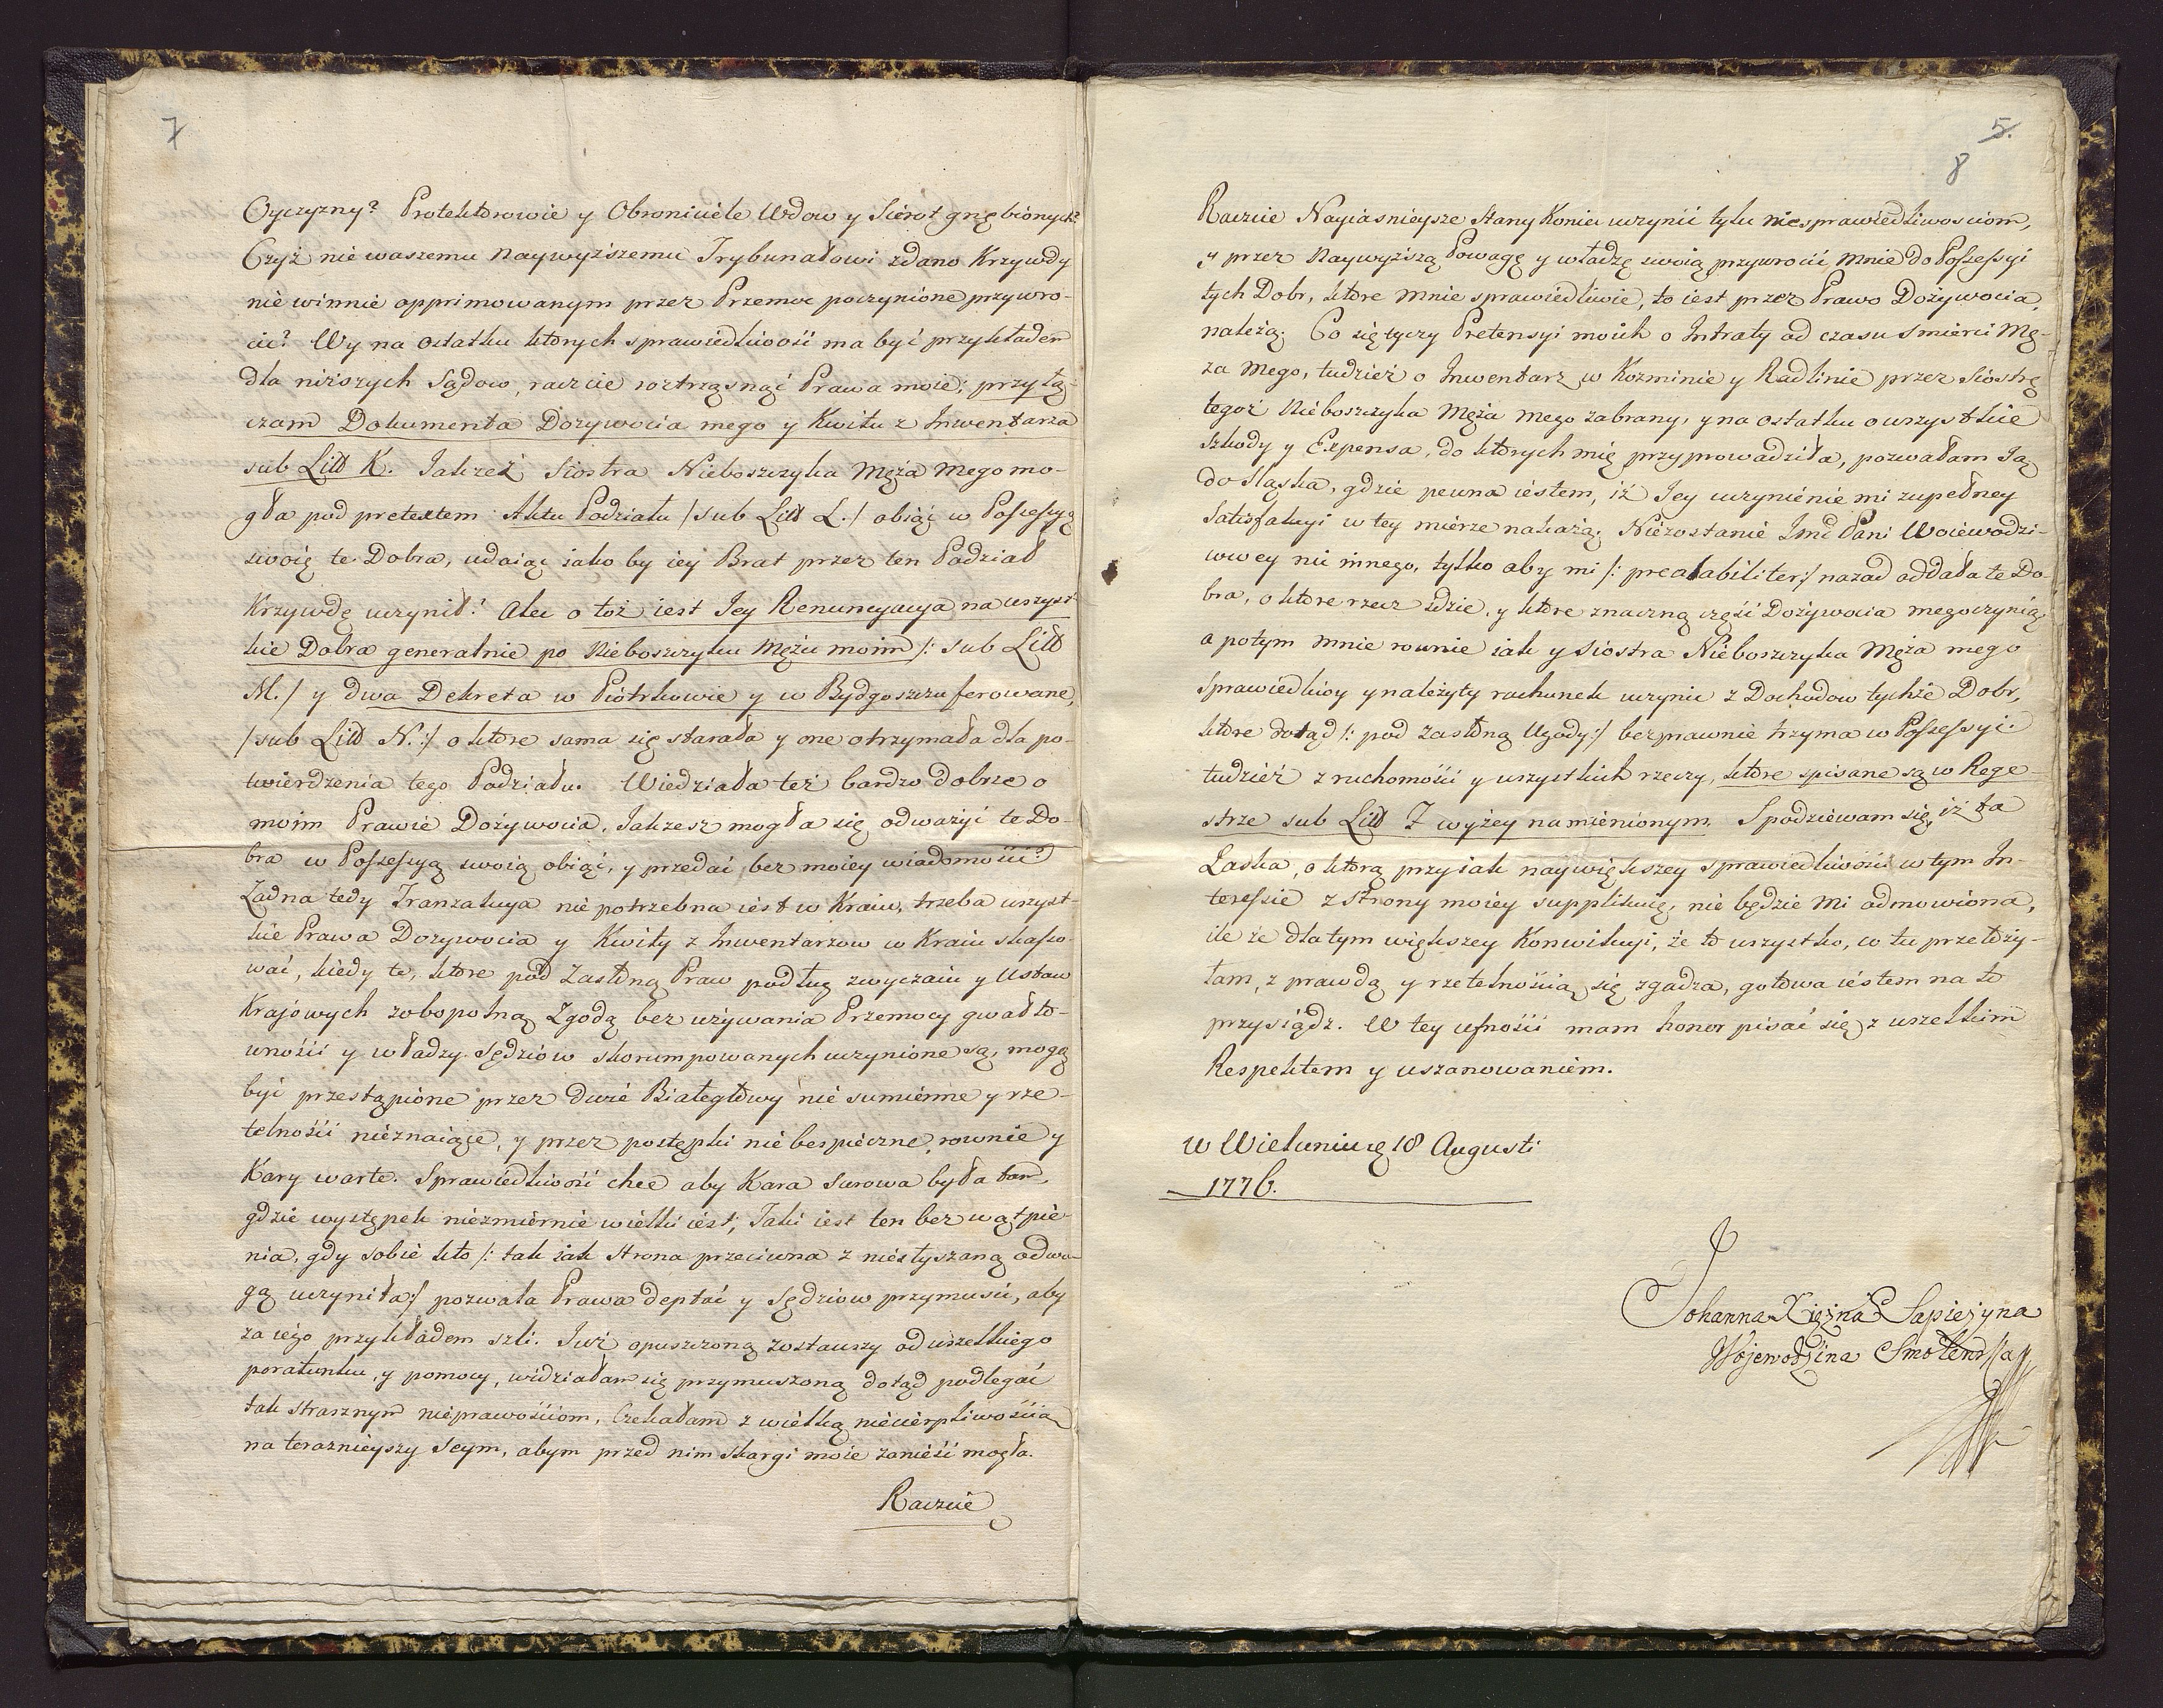 7
Oyczyzny? Protektorowie y Obroniciele Wdow y Sierot gnębionych?
Czyż nie waszemu naywyższemu Trybunałowi zdano Krzywdy
nie winnie opprimowanym przez Przemoc poczynione przywro-
cić? Wy na ostatku ktorych sprawiedliwość ma być przykładem
dla niższych Sądow, raczcie roztrząsnąć Prawa moie; przyłą-
czam Dokumenta Dożywocia mego y Kwitu z Inwentarza
sub Litt K. Jakzeż Siostra Nieboszczyka Męża mego mo-
gła pod pretextem Aktu Podziału /sub Litt L./ obiąć w Possessyą
swoię te Dobra, udaiąc iako by iey Brat przez ten Podział
Krzywdę uczynił? Alec o toż iest Jey Renuncyacya na wszyst-
kie Dobra generalnie po Nieboszczyku Mężu moim /: sub Litt
M./ y dwa Dekreta w Piotrkowie y w Bydgoszczu ferowane,
/sub Litt N.:/ o ktore sama się starała y one otrzymała dla po-
twierdzenia tego Podziału. Wiedziała też bardzo dobrze o
moim Prawie Dożywocia, Jakzesz mogła się odważyć te Do-
bra w Possessyą swoią obiąć, y przedać bez moiey wiadomości?
Żadna tedy Tranzakcya nie potrzebna iest w Kraiu, trzeba wszyst-
kie Prawa Dożywocia y Kwity z Inwentarzow w Kraiu skasso-
wać, kiedy te, ktore pod Zasłoną Praw podług zwyczaiu y Ustaw
Krajowych zobopolną Zgodą bez używania Przemocy gwałto-
wności y władzy Sędziow skorumpowanych uczynione są, mogą
być przestąpione przez dwie Białegłowy nie sumienne y rze-
telności nieznaiące, y przez postępki nie bespieczne, rownie y
Kary warte. Sprawiedliwość chce aby Kara surowa była tam,
gdzie występek niezmiernie wielki iest, Taki iest ten bez wątpie-
nia, gdy sobie kto /: tak iak Strona przeciwna z niesłyszaną odwa-
gą uczyniła:/ pozwala Prawa deptać y Sędziow przymusić, aby
za iego przykładem szli. Już opuszczoną zostawszy od wszelkiego
poratunku, y pomocy, widziałam się przymuszoną dotąd podlegać
tak strasznym nieprawościom, Czekałam z wielką niecierpliwością
na teraznieyszy Seym, abym przed nim Skargi moie zanieść mogła.
Raczcie
5.
8
Raczcie Nayiasnieysze Stany Koniec uczynić tylu niesprawiedliwosciom,
y przez Naywyższą Powagę y władzę swoią przywrocić mnie do Possessyi
tych Dobr, ktore mnie sprawiedliwie, to iest przez Prawo Dożywocia
należą. Co się tyczy Pretensyi moich o Intraty od czasu Smierci Mę-
ża mego, tudzież o Inwentarz w Kozminie y Radlinie przez Siostrę
tegoż Nieboszczyka Męża mego zabrany, y na ostatku o wszystkie
Szkody y Expensa, do ktorych mię przyprowadziła, pozwałam Ją
do Sląska, gdzie pewna iestem, iż Jey uczynienie mi zupełney
Satisfakcyi w tey mierze nakażą. Niezostanie Jmć Pani Woiewodzi-
wwey nic innego, tylko aby mi /: prealabiliter:/ nazad oddała te Do-
bra, o ktore rzecz idzie, y ktore znaczną część Dożywocia mego czynią,
a potym mnie rownie iak y Siostra Nieboszczyka Męża mego
sprawiedliwy y należyty rachunek uczynic z Dochodow tychże Dobr,
ktore dotąd /: pod Zasłoną Ugody:/ bezprawnie trzyma w Possessyi.
tudzież z ruchomości y wszystkich rzeczy, ktore spisane są w Rege-
strze sub Litt I wyżey namienionym. Spodziewam się, iż ta
Łaska, o ktorą przy iak naywiększey sprawiedliwości w tym In-
teressie z Strony moiey supplikuię, nie będzie mi odmowiona,
ile że dla tym większey Konwikcyi, że to wszystko, co tu przełoży-
łam, z prawdą y rzetelnością się zgadza, gotowa iestem na to
przysiądz. W tey ufności mam honor pisać się z wszelkim
Respektem y uszanowaniem.
w Wieluniu ę 18 Augusti
1776.
Johanna Xiężna Sapieżyna
Wojewodzina Smoleńska